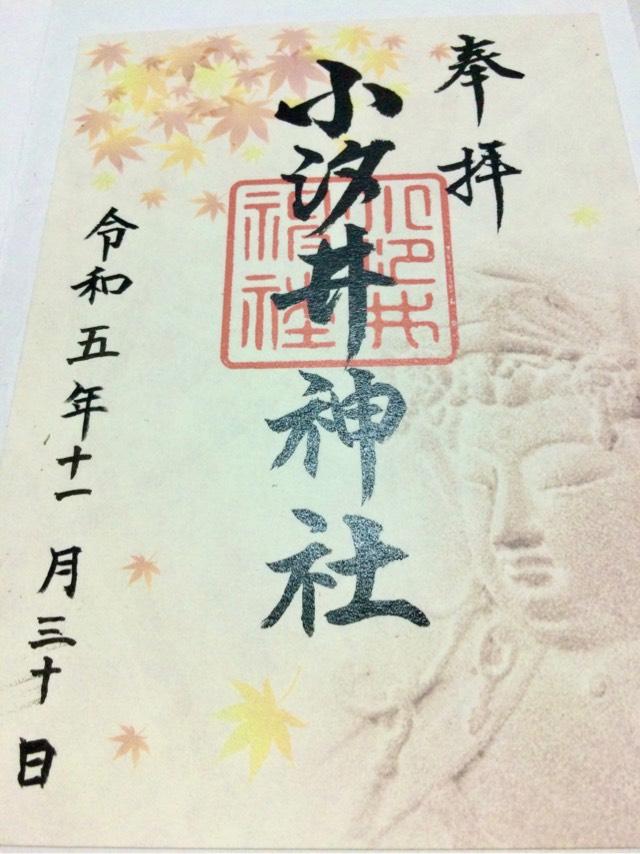 奉拝
小汐井神社
小汐井
神社
令和五年十一月三十日